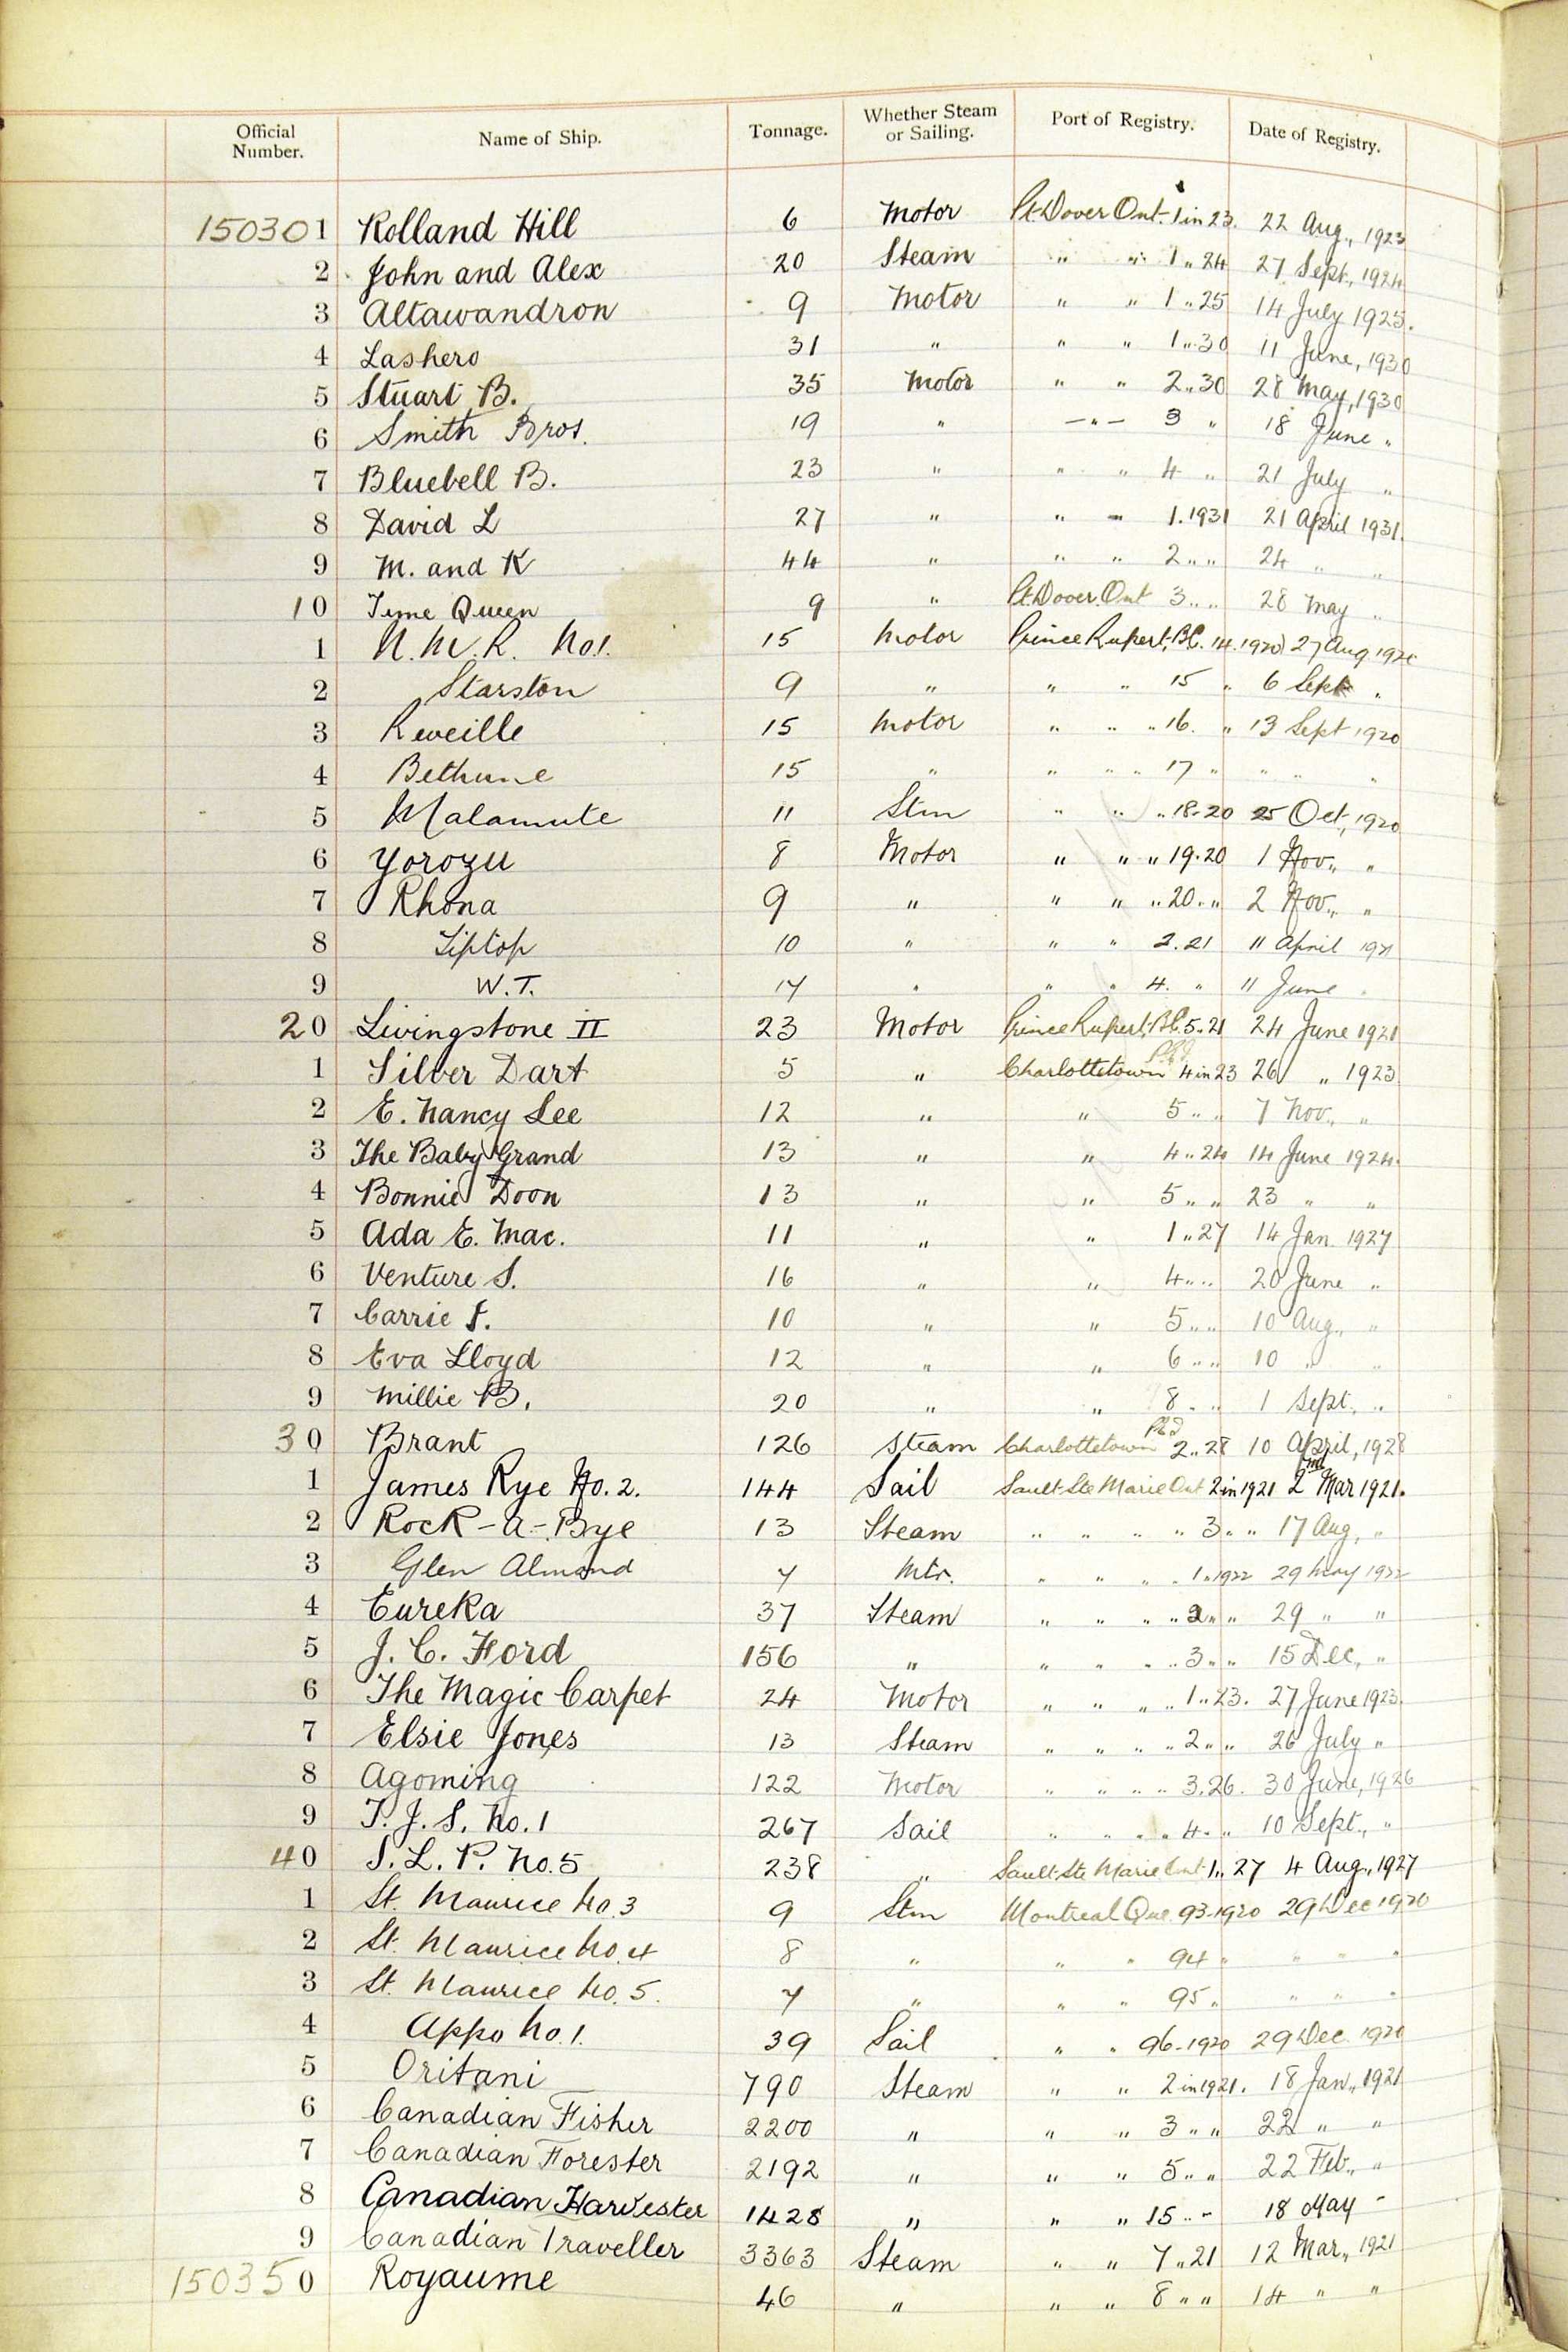 Official Number. Name of Ship. Tonnage. Whether Steam or Sailing. Port of Registry. Date of Registry.
150301 Rolland Hill 6 Motor Pt Dover Ont. 1 in 23. 22 Aug., 1923
2 John and Alex 20 Steam " " 1 " 24 27 Sept., 1924
3 Attawandron 9 Motor " " 1 " 25 14 July 1925.
4 Lashero 31 " " " 1 " 30 11 June, 1930
5 Stuart B. 35 Motor " " 2 " 30 28 May, 1930
6 Smith Bros. 19 " – " – 3 " 18 June "
7 Bluebell B. 23 " " " 4 " 21 July "
8 David L 27 " " " 1. 1931 21 April 1931.
9 M. and K 44 " " " 2 " " 24 " "
10 Tyne Queen 9 " Pt Dover. Ont 3 " " 28 May "
1 N.M.R. No 1. 15 Motor Prince Rupert, B.C. 14. 1920 27 Aug 1920
2 Starston 9 " " " 15 " 6 Sept "
3 Reveille 15 Motor " " " 16. " 13 Sept 1920
4 Bethune 15 " " " " 17 " " " "
5 Malamute 11 Stm " " " 18.20 25 Oct., 1920
6 Yorozu 8 Motor " " " 19.20 1 Nov., "
7 Rhona 9 " " " " 20. " 2 Nov., "
8 Tiptop 10 " " " 2.21 11 April 1921
9 W.T. 14 " " " 4. " 11 June "
20 Livingstone II 23 Motor Prince Rupert, B.C. 5.21 24 June 1921
1 Silver Dart 5 " Charlottetown 4 in 23 26 " 1923
2 E. Nancy Lee 12 " " 5 " " 7 Nov., "
3 The Baby Grand 13 " " 4 " 24 14 June 1924.
4 Bonnie Doon 13 " " 5 " " 23 " "
5 Ada E. Mac. 11 " " 1 " 27 14 Jan 1927
6 Venture S. 16 " " 4 " " 20 June "
7 Carrie F. 10 " " 5 " " 10 Aug., "
8 Eva Lloyd 12 " " 6 " " 10 " "
9 Millie B. 20 " " 8 " " 1 Sept., "
30 Brant 126 Steam Charlottetown 2 " 28 10 April, 1928
1 James Rye No. 2. 144 Sail Sault Ste Marie Ont 2 in 1921 2nd Mar 1921.
2 Rock-a-Bye 13 Steam " " " " 3 " " 17 Aug, "
3 Glen Almond 7 Mtr. " " " " 1 " 1922 29 May 1922
4 Eureka 37 Steam " " " " 2 " " 29 " "
5 J. C. Ford 156 " " " " " 3 " " 15 Dec, "
6 The Magic Carpet 24 Motor " " " " 1 " 23. 27 June 1923.
7 Elsie Jones 13 Steam " " " " 2 " " 26 July "
8 Agoming 122 Motor " " " " 3.26. 30 June, 1926
9 T. J. S. No. 1 267 Sail " " " " 4 " " 10 Sept., "
40 S. L. P. No. 5 238 " Sault Ste Marie Ont 1 " 27 4 Aug., 1927
1 St. Maurice No. 3 9 Stm Montreal Que 93.1920 29 Dec 1920
2 St. Maurice No. 4 8 " " " 94 " " " "
3 St. Maurice No. 5. 7 " " " 95 " " " "
4 Appo No. 1. 39 Sail " " 96. 1920 29 Dec. 1920
5 Oritani 790 Steam " " 2 in 1921. 18 Jan., 1921
6 Canadian Fisher 2200 " " " 3 " " 22 " "
7 Canadian Forester 2192 " " " 5 " " 22 Feb., "
8 Canadian Harvester 1428 " " " 15 " " 18 May "
9 Canadian Traveller 3363 Steam " " 7 " 21 12 Mar., 1921
150350 Royaume 46 " " " 8 " " 14 " "